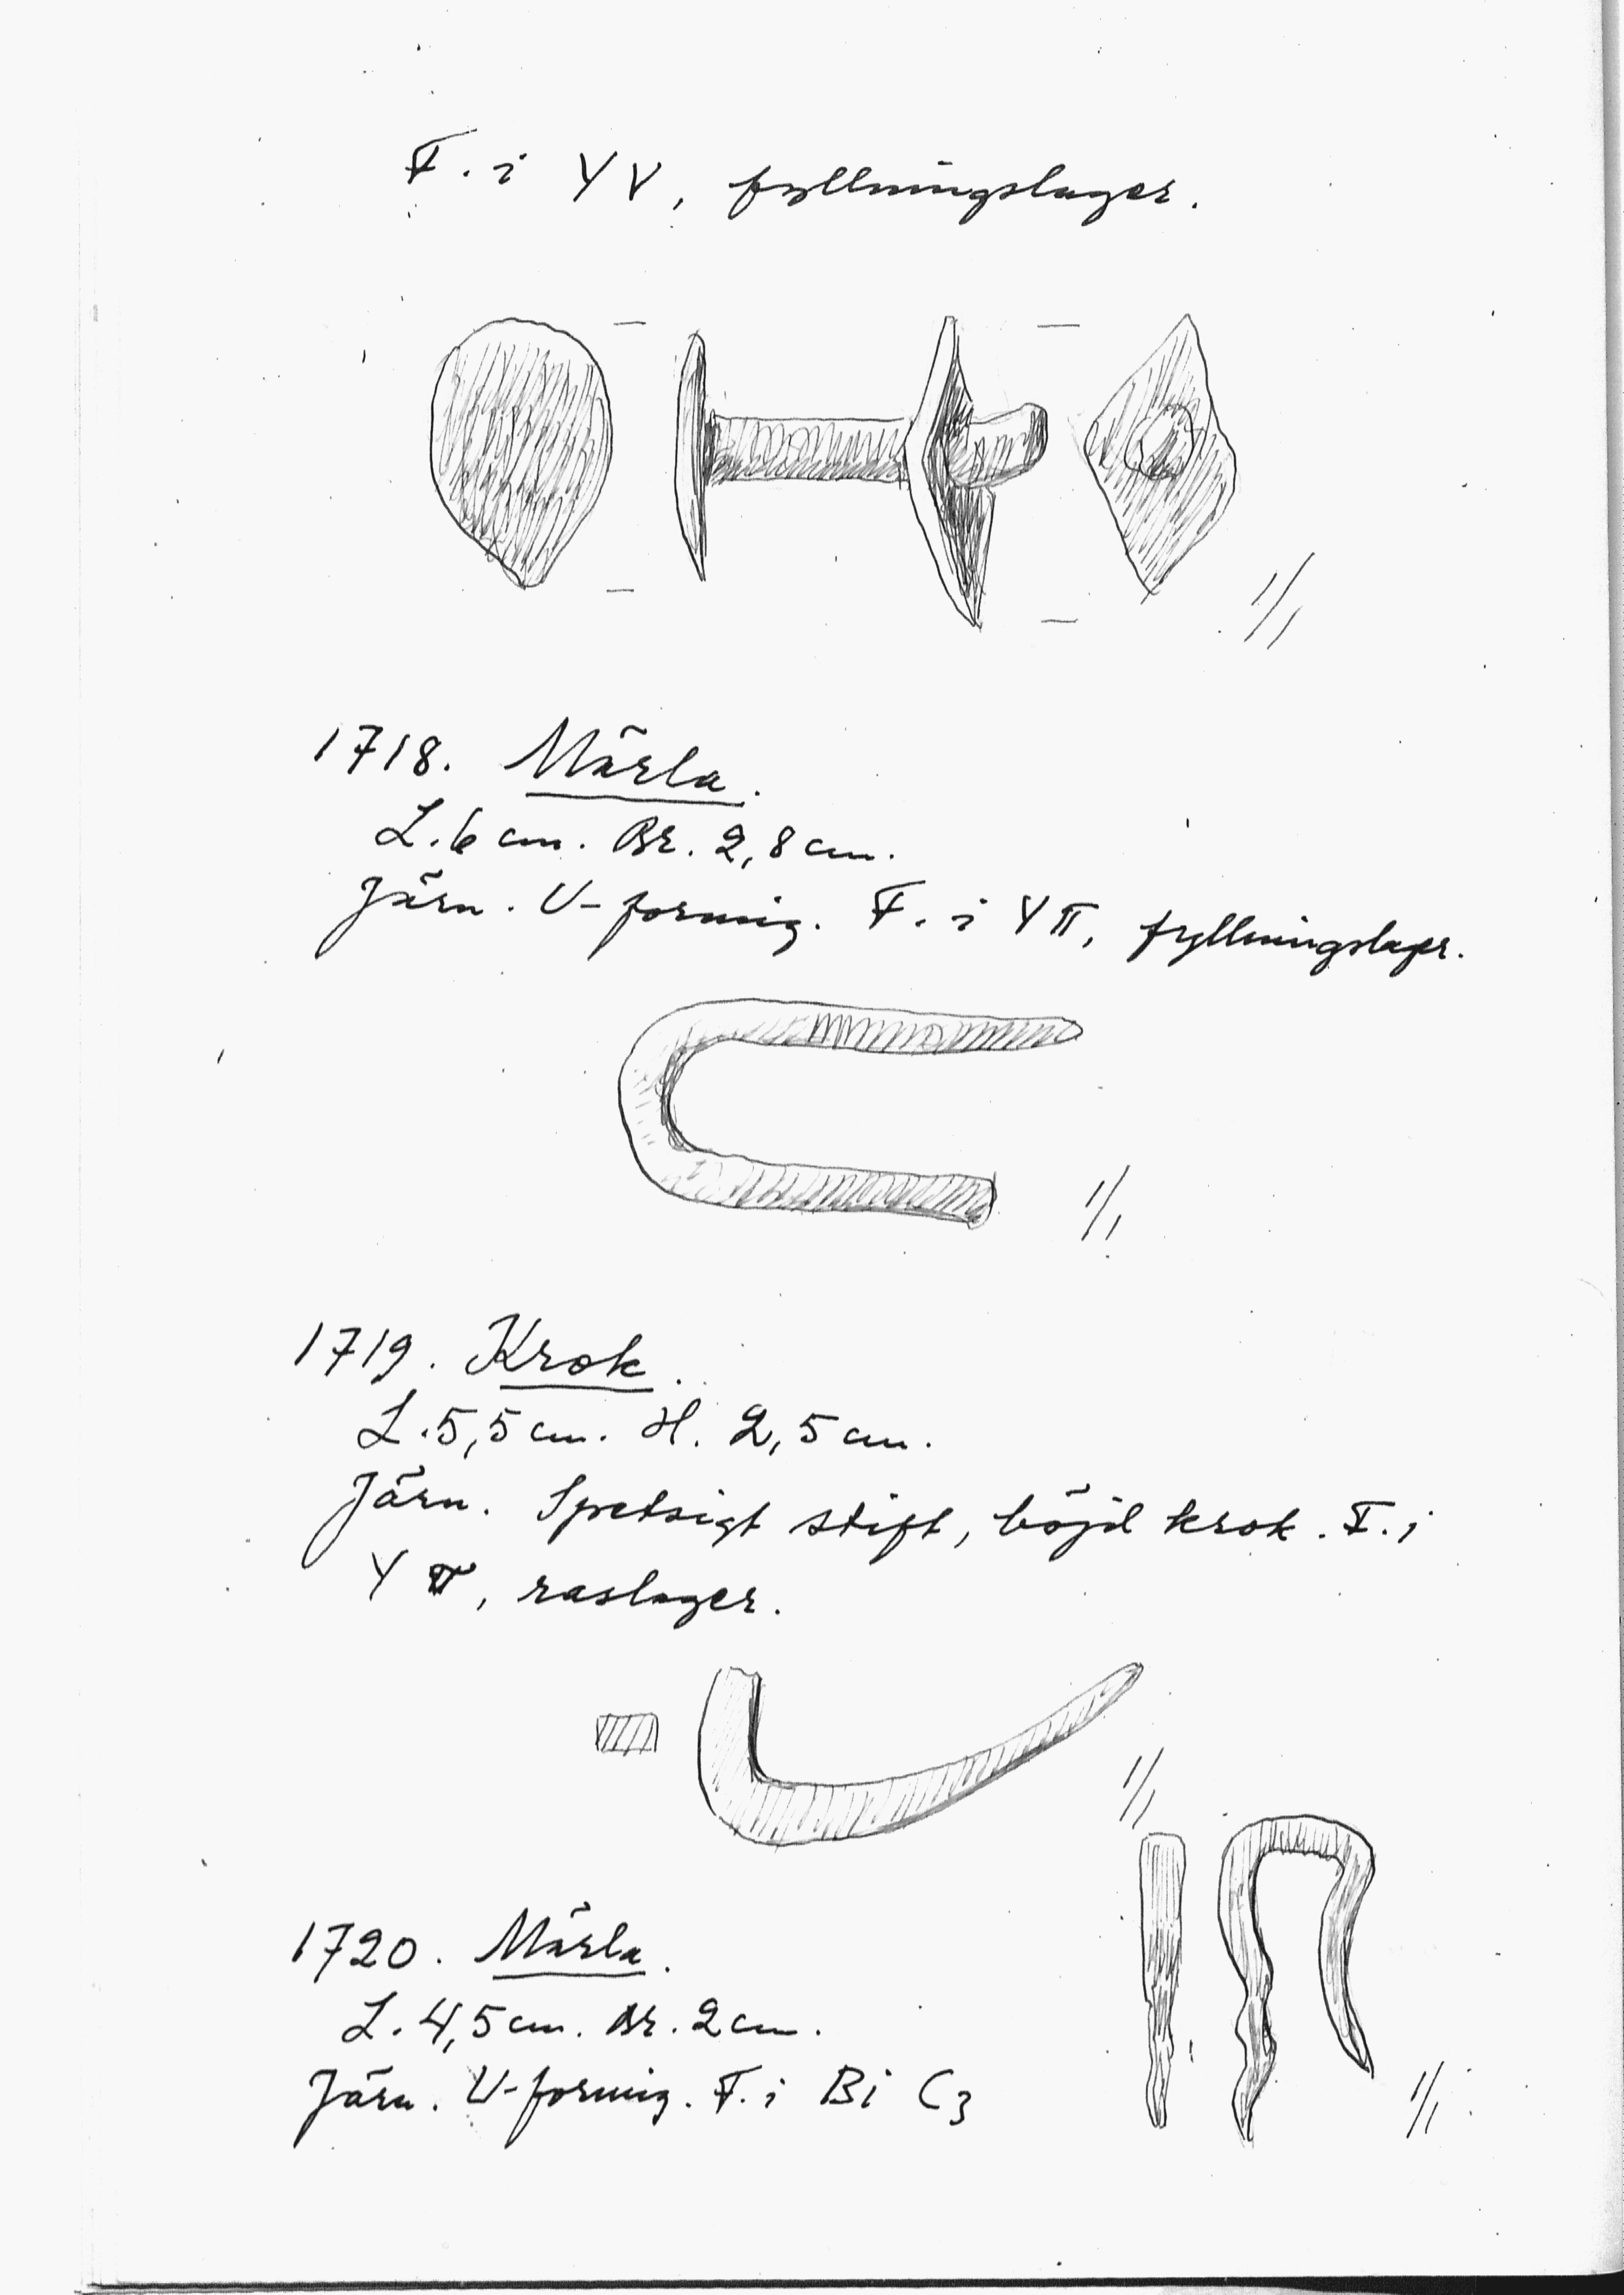 F. i YV, fyllningslager.
1/1
1718. Märla.
L. 6 cm. Br. 2,8 cm.
Järn. U-formig. F. i YII, fyllningslager.
1/1
1719. Krok.
L. 5,5 cm. H. 2,5 cm.
Järn. Spetsigt stift, böjd krok. F. i
Y, raslager.
1/1
1720. Märla.
L. 4,5 cm. Br. 2 cm.
Järn. U-formig. F. i Bi C3
1/1